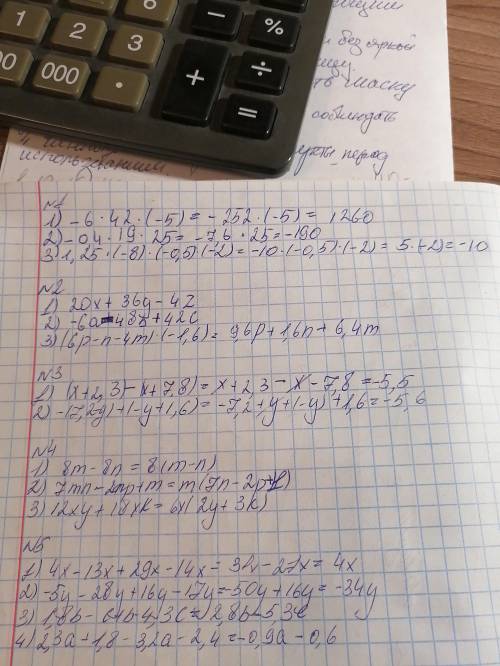 6
1 2 3 − %
00 000 · + ÷
=
без яркой
маску
соблюдать
период
использованием
№1
1) -6 · 42 · (-5) = -252 · (-5) = 1260
2) -0,4 · 19 · 25 = -7,6 · 25 = -190
3) 1,25 · (-8) · (-0,5) · (-2) = -10 · (-0,5) · (-2) = 5 · (-2) = -10
№2
1) 20x + 36y - 4z
2) -6a - 48b + 42c
3) (6p - n - 4m) · (-1,6) = 9,6p + 1,6n + 6,4m
№3
1) (x + 2,3) - (x + 7,8) = x + 2,3 - x - 7,8 = -5,5
2) -(7,2-y) + (-y + 1,6) = -7,2 + y + (-y) + 1,6 = -5,6
№4
1) 8m - 8n = 8(m-n)
2) 7mn - 2mp + m = m(7n - 2p + 1)
3) 12xy + 18xk = 6x(2y + 3k)
№5
1) 4x - 13x + 29x - 14x = 31x - 27x = 4x
2) -5y - 28y + 16y - 17y = -50y + 16y = -34y
3) 1,8b - 4,3c = 2,8b - 5,3c
4) 2,3a + 1,8 - 3,2a - 2,4 = -0,9a - 0,6